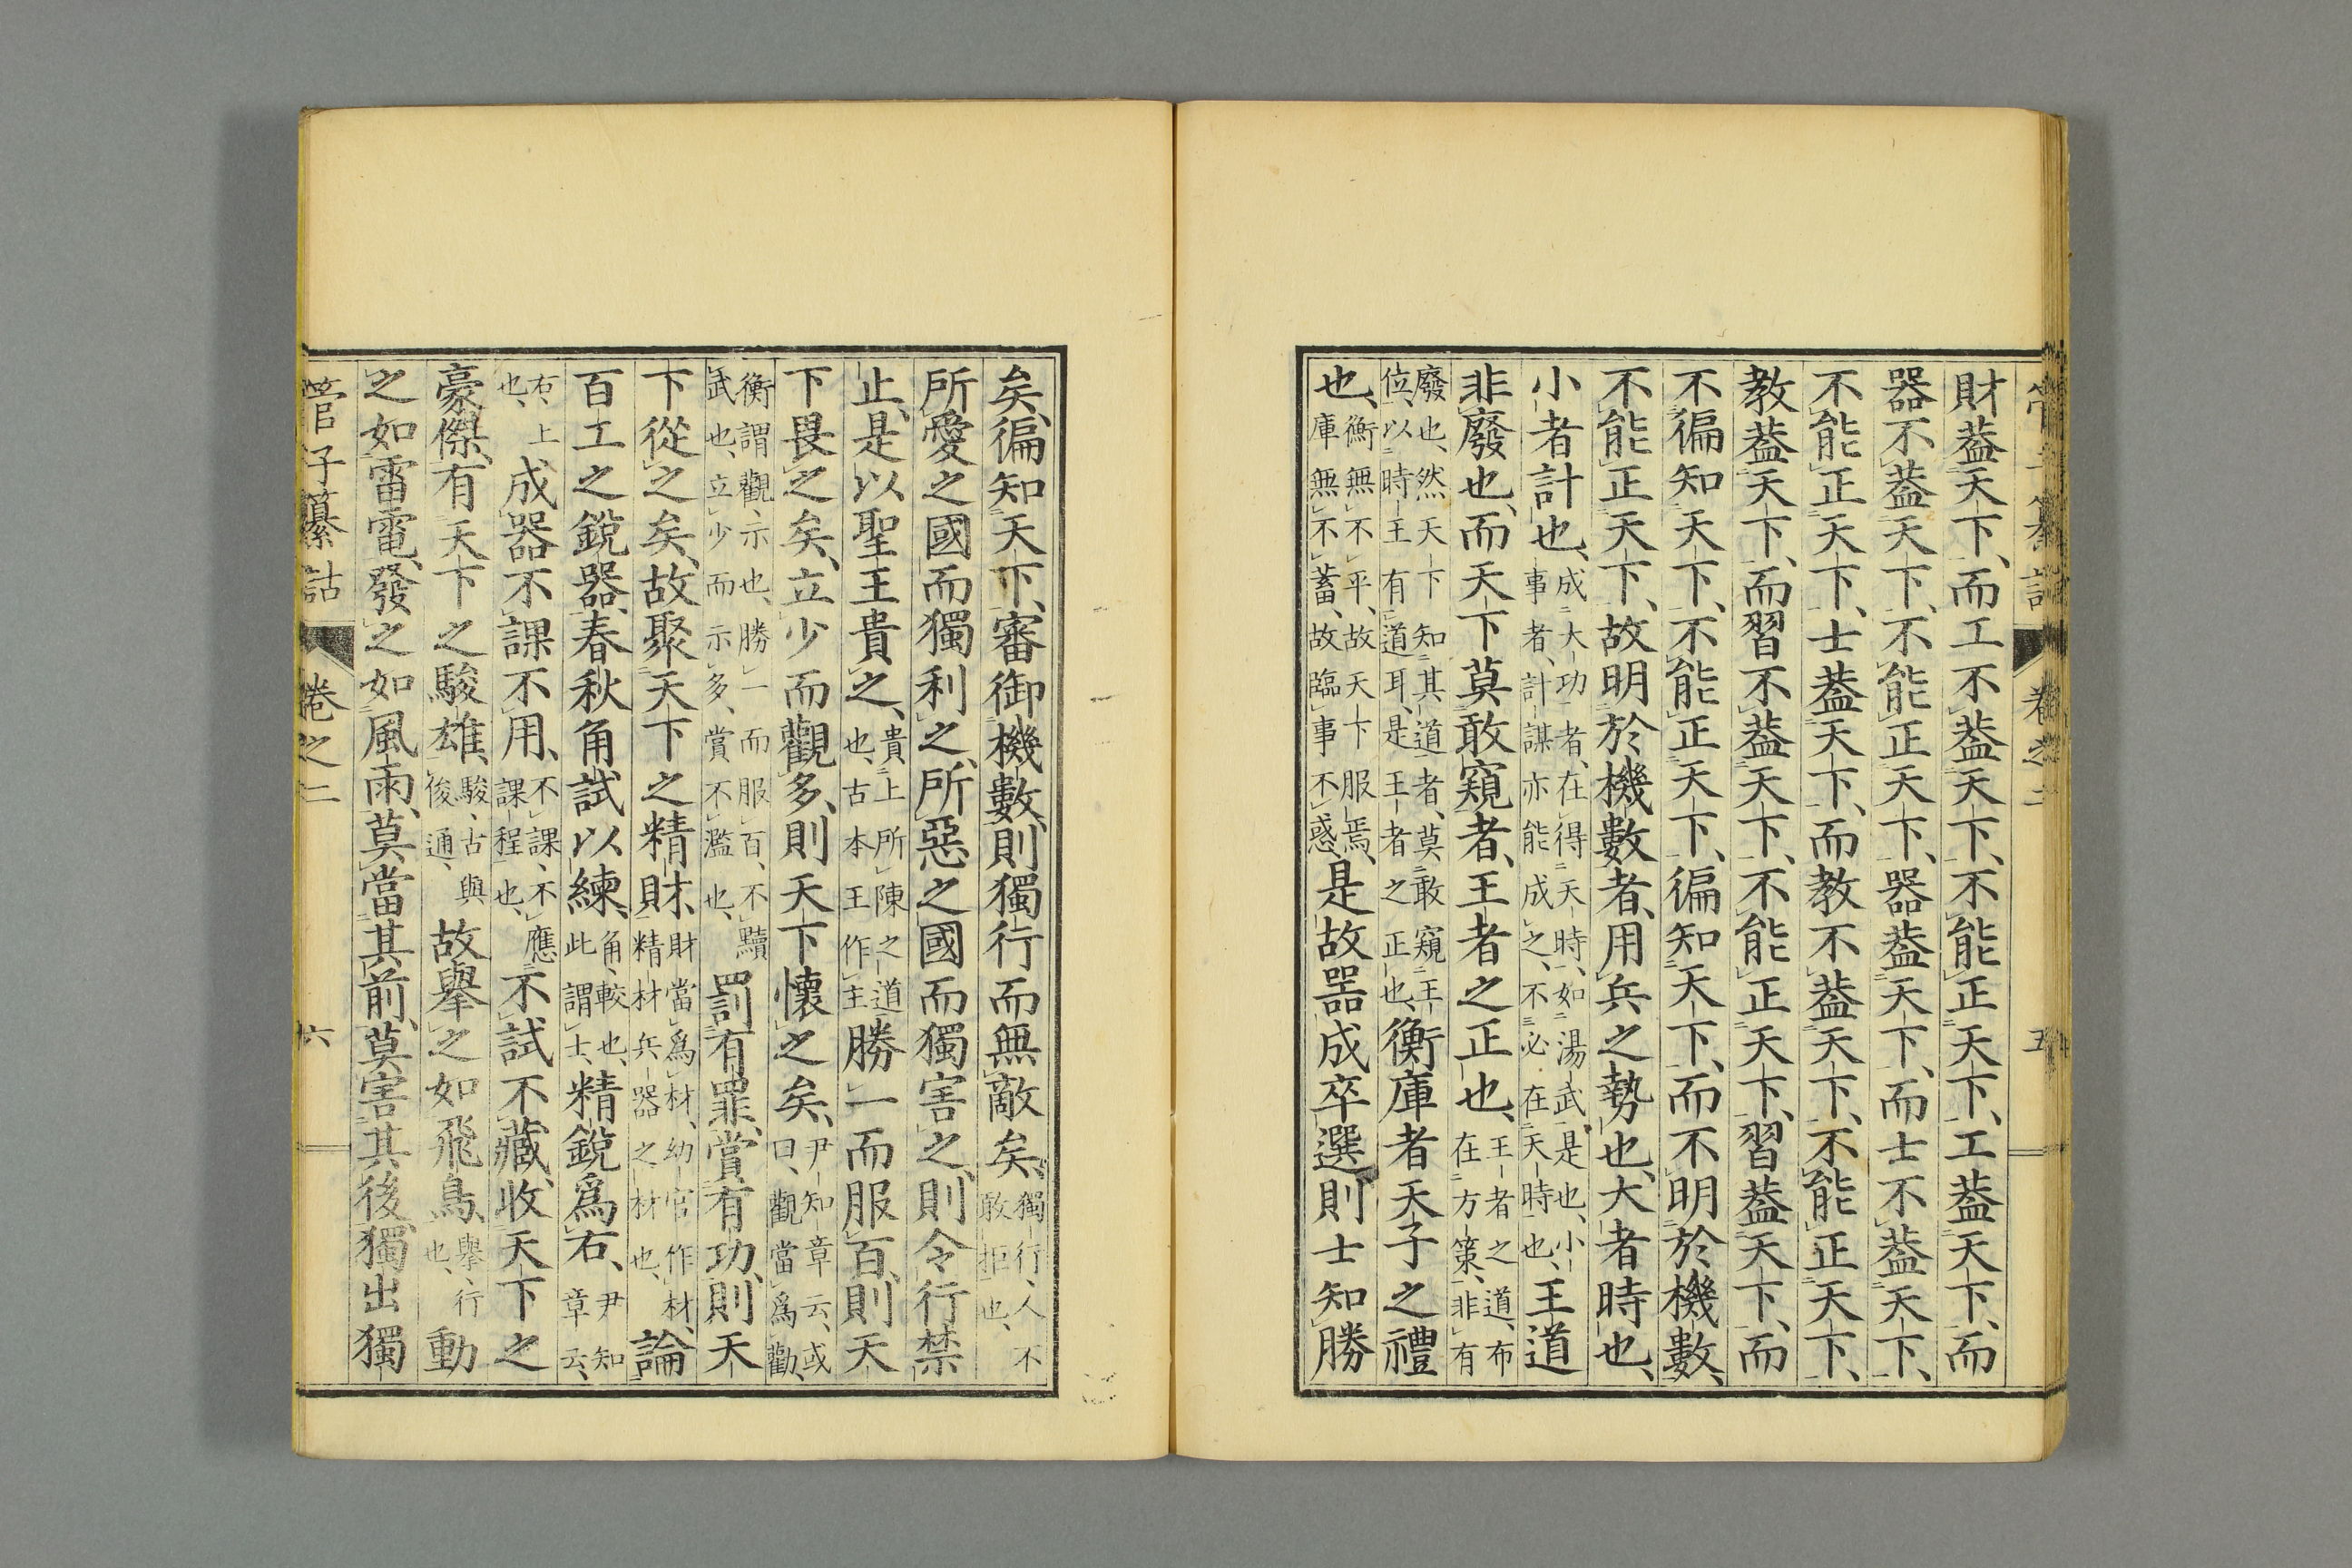 財葢天下、而工不葢天下、不能正天下、工葢天下、而
器不葢天下、不能正天下、器葢天下、而士不葢天下、
不能正天下、士葢天下、而教不葢天下、不能正天下、
教葢天下、而習不葢天下、不能正天下、習葢天下、而
不徧知天下、不能正天下、徧知天下、而不明於機數、
不能正天下、故明於機數者、用兵之勢也、大者時也、
小者計也、成大功者、在得天時、如湯武是也、小
事者、計謀亦能成之、不必在天時也、王道
非廢也、而天下莫敢窺者、王者之正也、王者之道、布
在方策、非有
廢也、然天下知其道者、莫敢窺王
位、以時王有道耳、是王者之正也、衡庫者天子之禮
也、衡無不平、故天下服焉、
庫無不蓄、故臨事不惑、是故器成卒選、則士知勝
矣、徧知天下、審御機數、則獨行而無敵矣、獨行、人不
敢拒也、
所愛之國而獨利之、所惡之國而獨害之、則令行禁
止、是以聖王貴之、貴上所陳之道
也、古本王作主勝一而服百、則天
下畏之矣、立少而觀多、則天下懷之矣、尹知章云、或
曰、觀當爲勸、
衡謂觀、示也、勝一而服百、不黷
武也、立少而示多、賞不濫也、罰有罪、賞有功、則天
下從之矣、故聚天下之精財、財當爲材、幼官作材、
精材兵器之材也、論
百工之鋭器、春秋角試以練、角、較也、
此謂士、精鋭爲右、尹知
章云、
右、上
也、成器不課不用、不課、不應
課程也、不試不藏、收天下之
豪傑、有天下之駿雄、駿、古與
俊通、故擧之如飛鳥、擧、行
也、動
之如雷電、發之如風雨、莫當其前、莫害其後、獨出獨
管子纂詁 卷之二 六